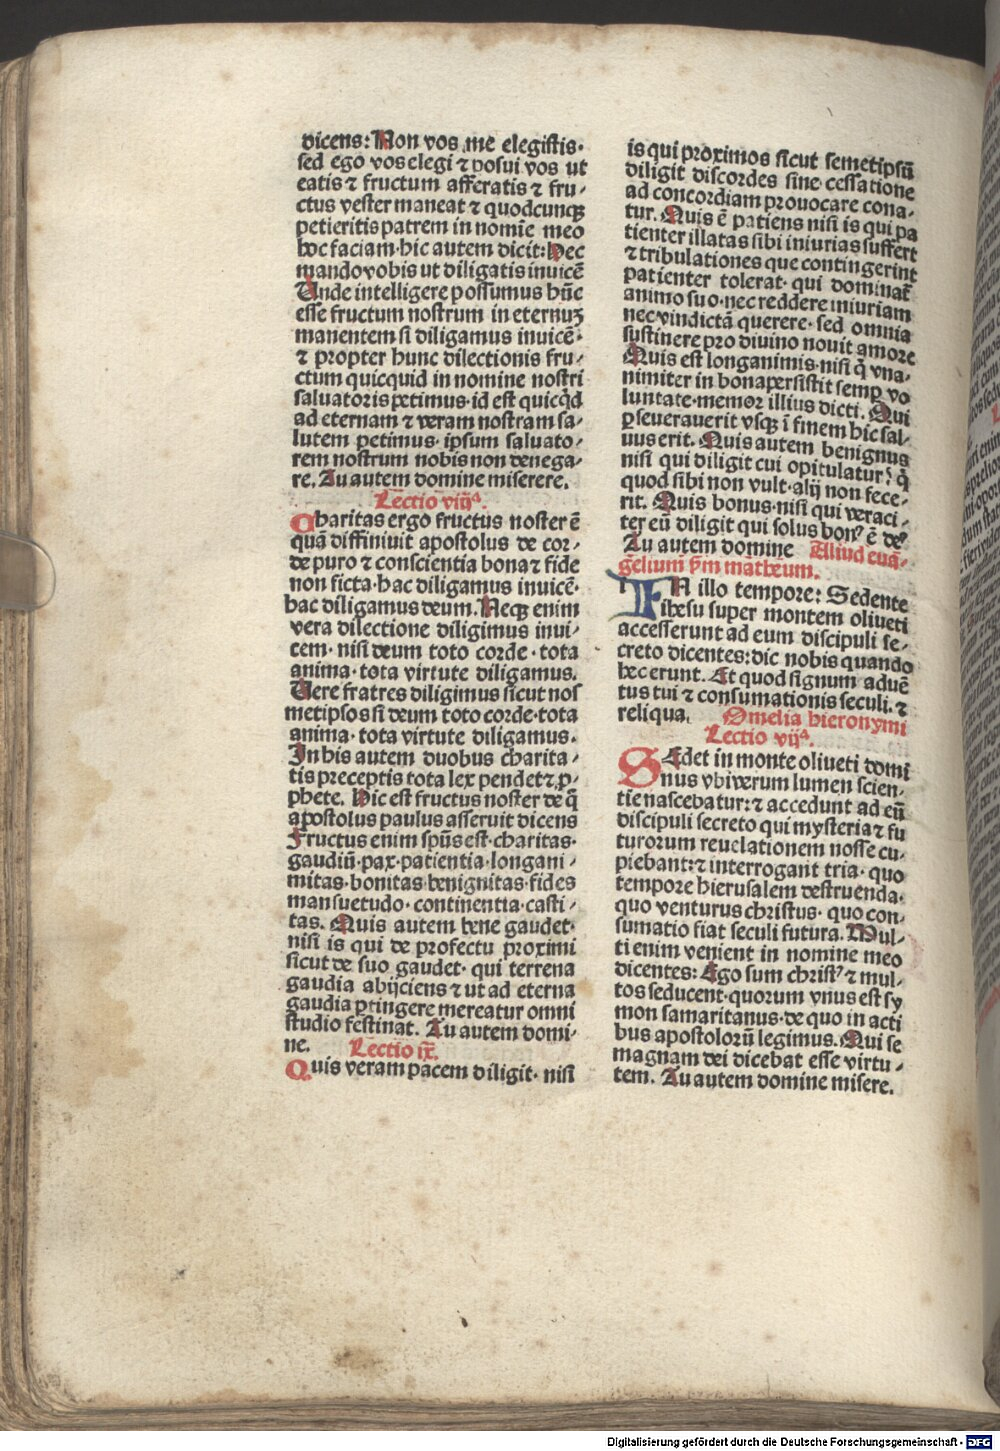 dicens: Non vos me elegistis·
sed ego vos elegi ⁊ posui vos ut
eatis ⁊ fructum afferatis ⁊ fru⸗
ctus vester maneat ⁊ quodcunqꝫ
petieritis patrem in nomīe meo
hoc faciam· hic autem dicit: Hec
mando vobis ut diligatis inuicē
Unde intelligere possumus hūc
esse fructum nostrum in eternuꝫ
manentem si diligamus inuicē·
⁊ propter hunc dilectionis fru⸗
ctum quicquid in nomine nostri
saluatoris petimus· id est quicq̇d
ad eternam ⁊ veram nostram sa⸗
lutem petimus· ipsum saluato⸗
rem nostrum nobis non denega⸗
re. Tu autem domine miserere.
Lectio viijᵃ.
Charitas ergo fructus noster ē
quā diffiniuit apostolus de cor⸗
de puro ⁊ conscientia bona ⁊ fide
non ficta· hac diligamus inuicē·
hac diligamus deum. Neqꝫ enim
vera dilectione diligimus inui⸗
cem· nisi deum toto corde· tota
anima· tota virtute diligamus.
Uere fratres diligimus sicut nos
metipsos si deum toto corde· tota
anima· tota virtute diligamus.
In his autem duobus charita⸗
tis preceptis tota lex pendet ⁊ ꝓ⸗
phete. Hic est fructus noster de q̄
apostolus paulus asseruit dicens
Fructus enim spūs est· charitas·
gaudiū· pax· patientia· longani⸗
mitas· bonitas· benignitas· fides
mansuetudo· continentia· casti⸗
tas. Quis autem bene gaudet·
nisi is qui de profectu proximi
sicut de suo gaudet· qui terrena
gaudia abijciens ⁊ ut ad eterna
gaudia ꝑtingere mereatur omni
studio festinat. Tu autem domi⸗
ne. Lectio ix.
Quis veram pacem diligit· nisi
is qui proximos sicut semetipsū
diligit discordes sine cessatione
ad concordiam prouocare cona⸗
tur. Quis ē patiens nisi is qui pa
tienter illatas sibi iniurias suffert
⁊ tribulationes que contingerint
patienter tolerat· qui dominat᷑
animo suo· nec reddere iniuriam
nec vindictā querere· sed omnia
sustinere pro diuino nouit amore
Quis est longanimis· nisi q̇ vna⸗
nimiter in bona persistit semꝑ vo
luntate· memor illius dicti. Qui
ꝑseuerauerit vsqꝫ ī finem hic sal⸗
uus erit. Quis autem benignus
nisi qui diligit cui opitulatur? q̇
quod sibi non vult· alij non fece⸗
rit. Quis bonus· nisi qui veraci⸗
ter eū diligit qui solus bonꝰ ē deꝰ
Tu autem domine Aliud euā⸗
gelium ẜm matheum.
IN illo tempore: Sedente
ihesu super montem oliueti
accesserunt ad eum discipuli se⸗
creto dicentes: dic nobis quando
hec erunt. Et quod signum aduē
tus tui ⁊ consumationis seculi. ⁊
reliqua. Omelia hieronymi
Lectio vijᵃ.
SEdet in monte oliueti domi
nus vbi verum lumen scien⸗
tie nascebatur: ⁊ accedunt ad eū
discipuli secreto qui mysteria ⁊ fu
turorum reuelationem nosse cu⸗
piebant: ⁊ interrogant tria· quo
tempore hierusalem destruenda·
quo venturus christus· quo con⸗
sumatio fiat seculi futura. Mul⸗
ti enim venient in nomine meo
dicentes: Ego sum christꝰ ⁊ mul⸗
tos seducent· quorum vnus est sy
mon samaritanus· de quo in acti
bus apostolorū legimus. Qui se
magnam dei dicebat esse virtu⸗
tem. Tu autem domine misere.
Digitalisierung gefördert durch die Deutsche Forschungsgemeinschaft - DFG